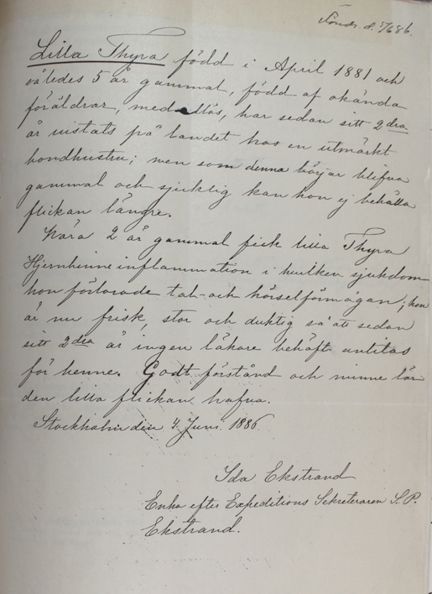 Lilla Thyra född i April 1881 och
således 5 år gammal, född af okända
föräldrar, medellös, har sedan sitt 2dra
år vistats på landet hos en utmärkt
bondhustru; men som denna börjar blifva
gammal och sjuklig kan hon ej behålla
flickan längre.
Nära 2 år gammal fick lilla Thyra
Hjernhinneinflammation i hvilken sjukdom
hon förlorade tal- och hörselförmågan; hon
är nu frisk, stor och duktig så att sedan
sitt 2dra år ingen läkare behöft anlitas
för henne. Godt förstånd och minne lär
den lilla flickan hafva.
Stockholm den 4 Juni 1886
Ida Ekstrand
Enka efter Expeditions Sekreteraren S.P.
Ekstrand.